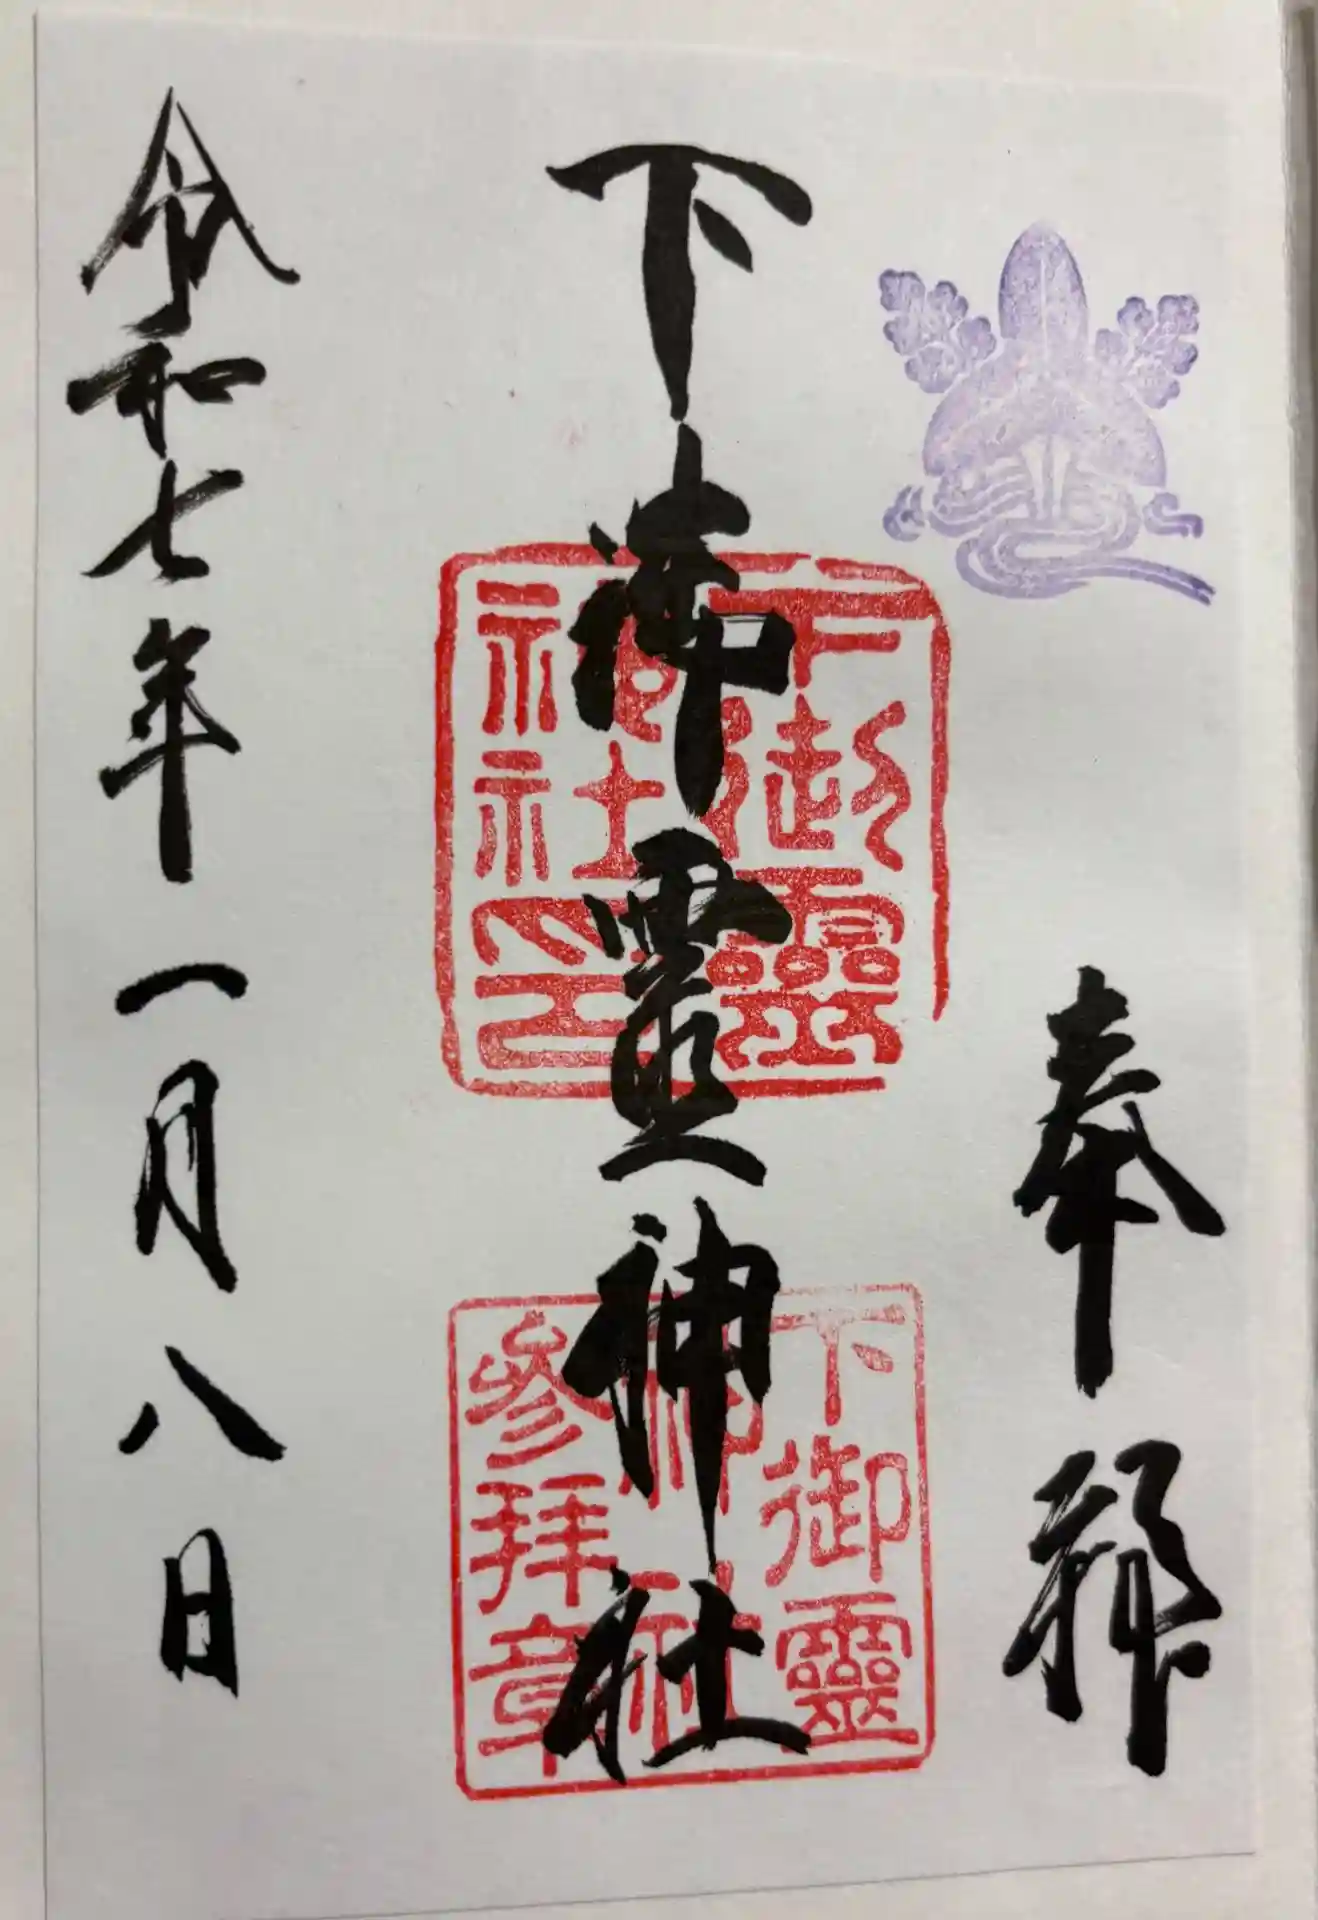 奉拝
下御霊神社
下御靈
神社印
下御靈
神社
參拜章
令和七年一月八日